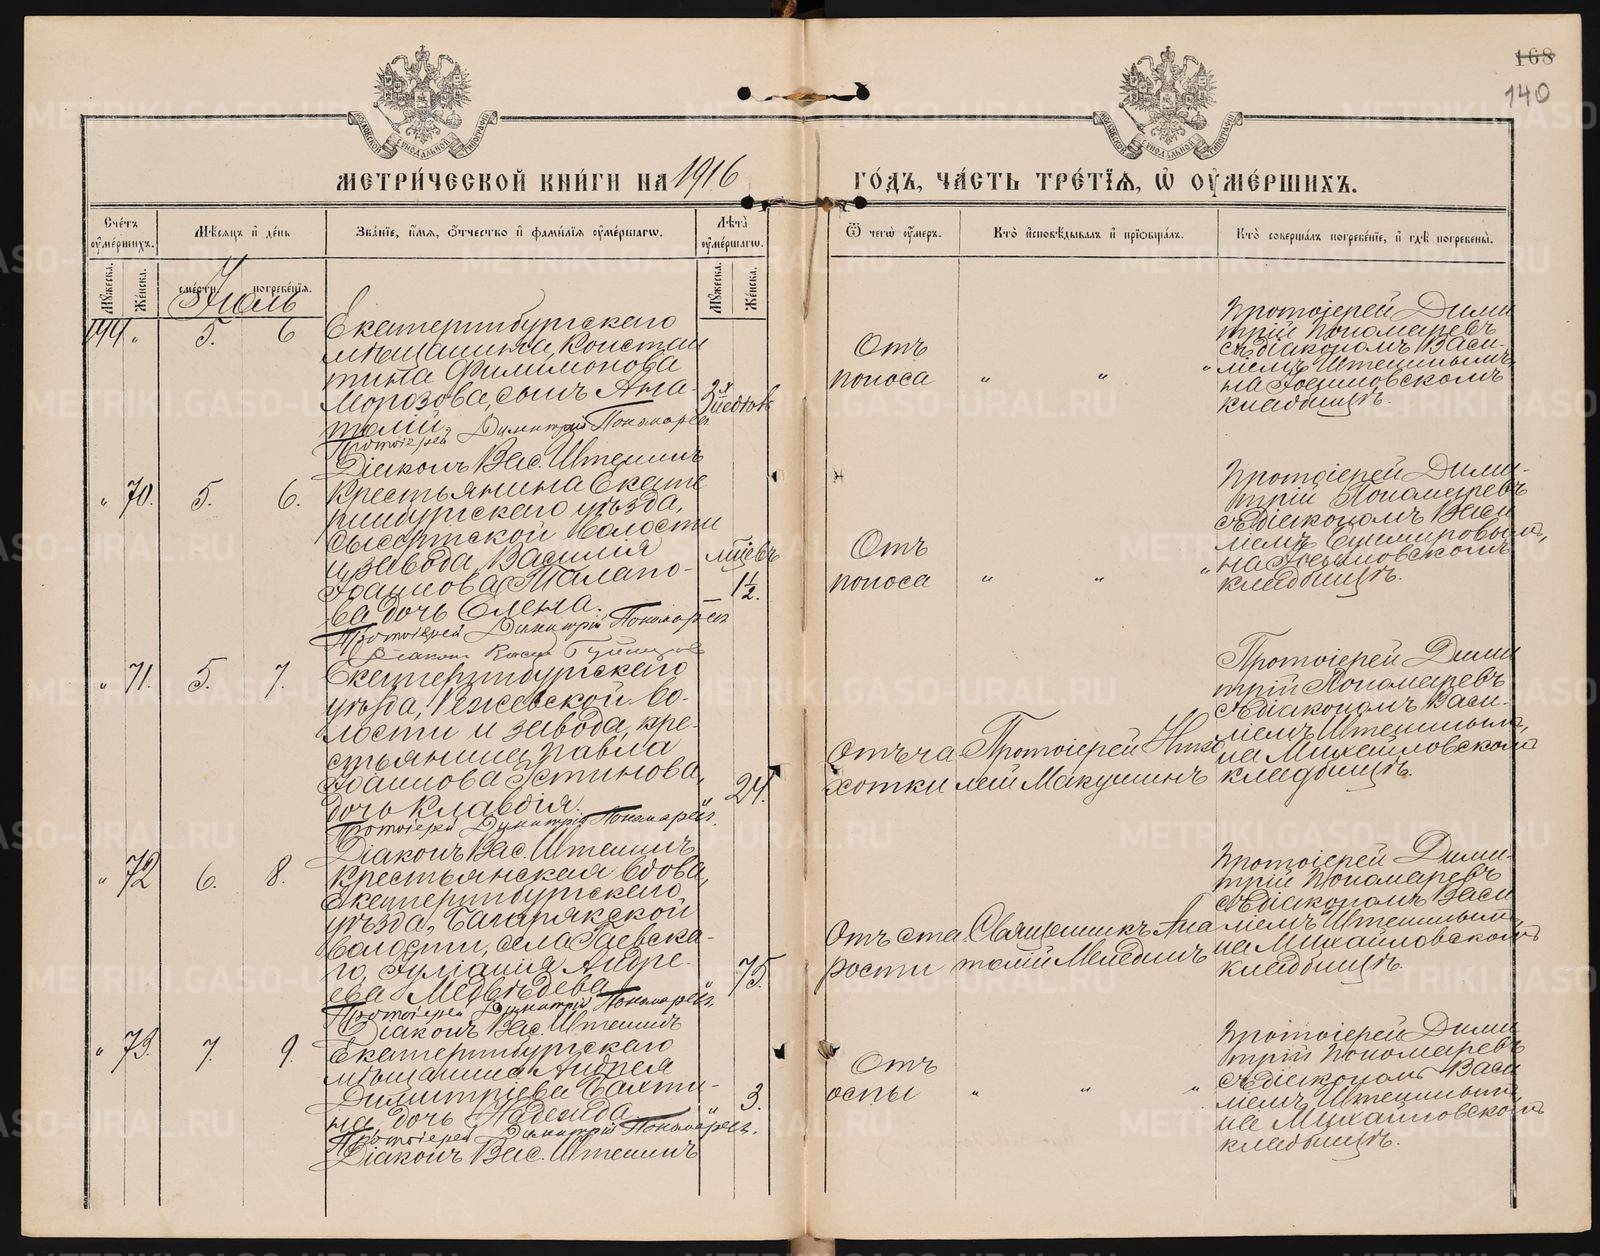 168
140
МЕТРИ́ЧЕСКОЙ КНИ́ГИ НА 1916 ГО́ДЪ, ЧА́СТЬ ТРЕ́ТІЯ, Ѽ ОУМЕ́РШИХЪ.
Сче́тъ оумершихъ.
Мѣсяцъ и день
Зва́ніе, и́мя, о́тчество и фами́лія оуме́ршагѡ.
Лѣта оумершагѡ.
Ѿ чегѡ оумеръ.
Кто̀ исповѣ́дывалъ и пріѡбща́лъ.
Кто̀ соверша́лъ погребе́ніе, и гдѣ погребены̀.
Мужеска.
Женска.
смерти.
погребенія.
Мужеска.
Женска.
Іюль
144
"
5.
6
Екатеринбургскаго
мѣщанина Констан
тина Филимонова
Морозова, сынъ Ана-
толій.
Протоіерей Димитрій Пономаревъ
Діаконъ Вас. Иштенинъ
Отъ
поноса
"
"
"
Протоіерей Дими
трій Пономаревъ
съ діакономъ Васи-
ліемъ
на
кладбищѣ.
"
70.
5.
6.
Крестьянина Екате
ринбургскаго уѣзда,
Сысертской волости
и завода, Василія
Іоаннова
ва дочь Елена.
Протоіерей Димитрій Пономаревъ
Діаконъ
мѣсяцевъ
1½.
Отъ
поноса
"
"
"
Протоіерей Дими-
трій Пономаревъ
съ діакономъ Васи
ліемъ
на
кладбищѣ.
"
71.
5.
7.
Екатеринбургскаго
уѣзда, Режевской во-
лости и завода, кре-
стьянина Павла
Іоаннова Устинова,
дочь Клавдія.
Протоіерей Димитрій Пономаревъ.
Діаконъ Вас. Иштенинъ
24.
Отъ ча
хотки
Протоіерей Нико
лай Макушинъ
Протоіерей Дими
трій Пономаревъ
съ діакономъ Васи-
ліемъ
на Михайловскомъ
кладбищѣ.
"
72
6.
8.
Крестьянская вдова,
Екатеринбургскаго
уѣзда, Багарякской
волости, села Гаевска-
го, Іуліанія Андре-
ева Медвѣдева
Протоіерей Димитрій Пономаревъ.
Діаконъ Вас. Иштенинъ
75.
Отъ ста
рости
Священникъ Ана
толій
Протоіерей Дими-
трій Пономаревъ
съ діакономъ Васи
ліемъ
на Михайловскомъ
кладбищѣ.
"
73.
7.
9.
Екатеринбургскаго
мѣщанина Андрея
Димитріева Бахти-
на, дочь Надежда
Протоіерей Димитрій Пономаревъ.
Діаконъ Вас. Иштенинъ
3.
Отъ
оспы
"
"
"
Протоіерей Дими
трій Пономаревъ
съ діакономъ Васи
ліемъ
на Михайловскомъ
кладбищѣ.
METRIKI.GASO-URAL.RU